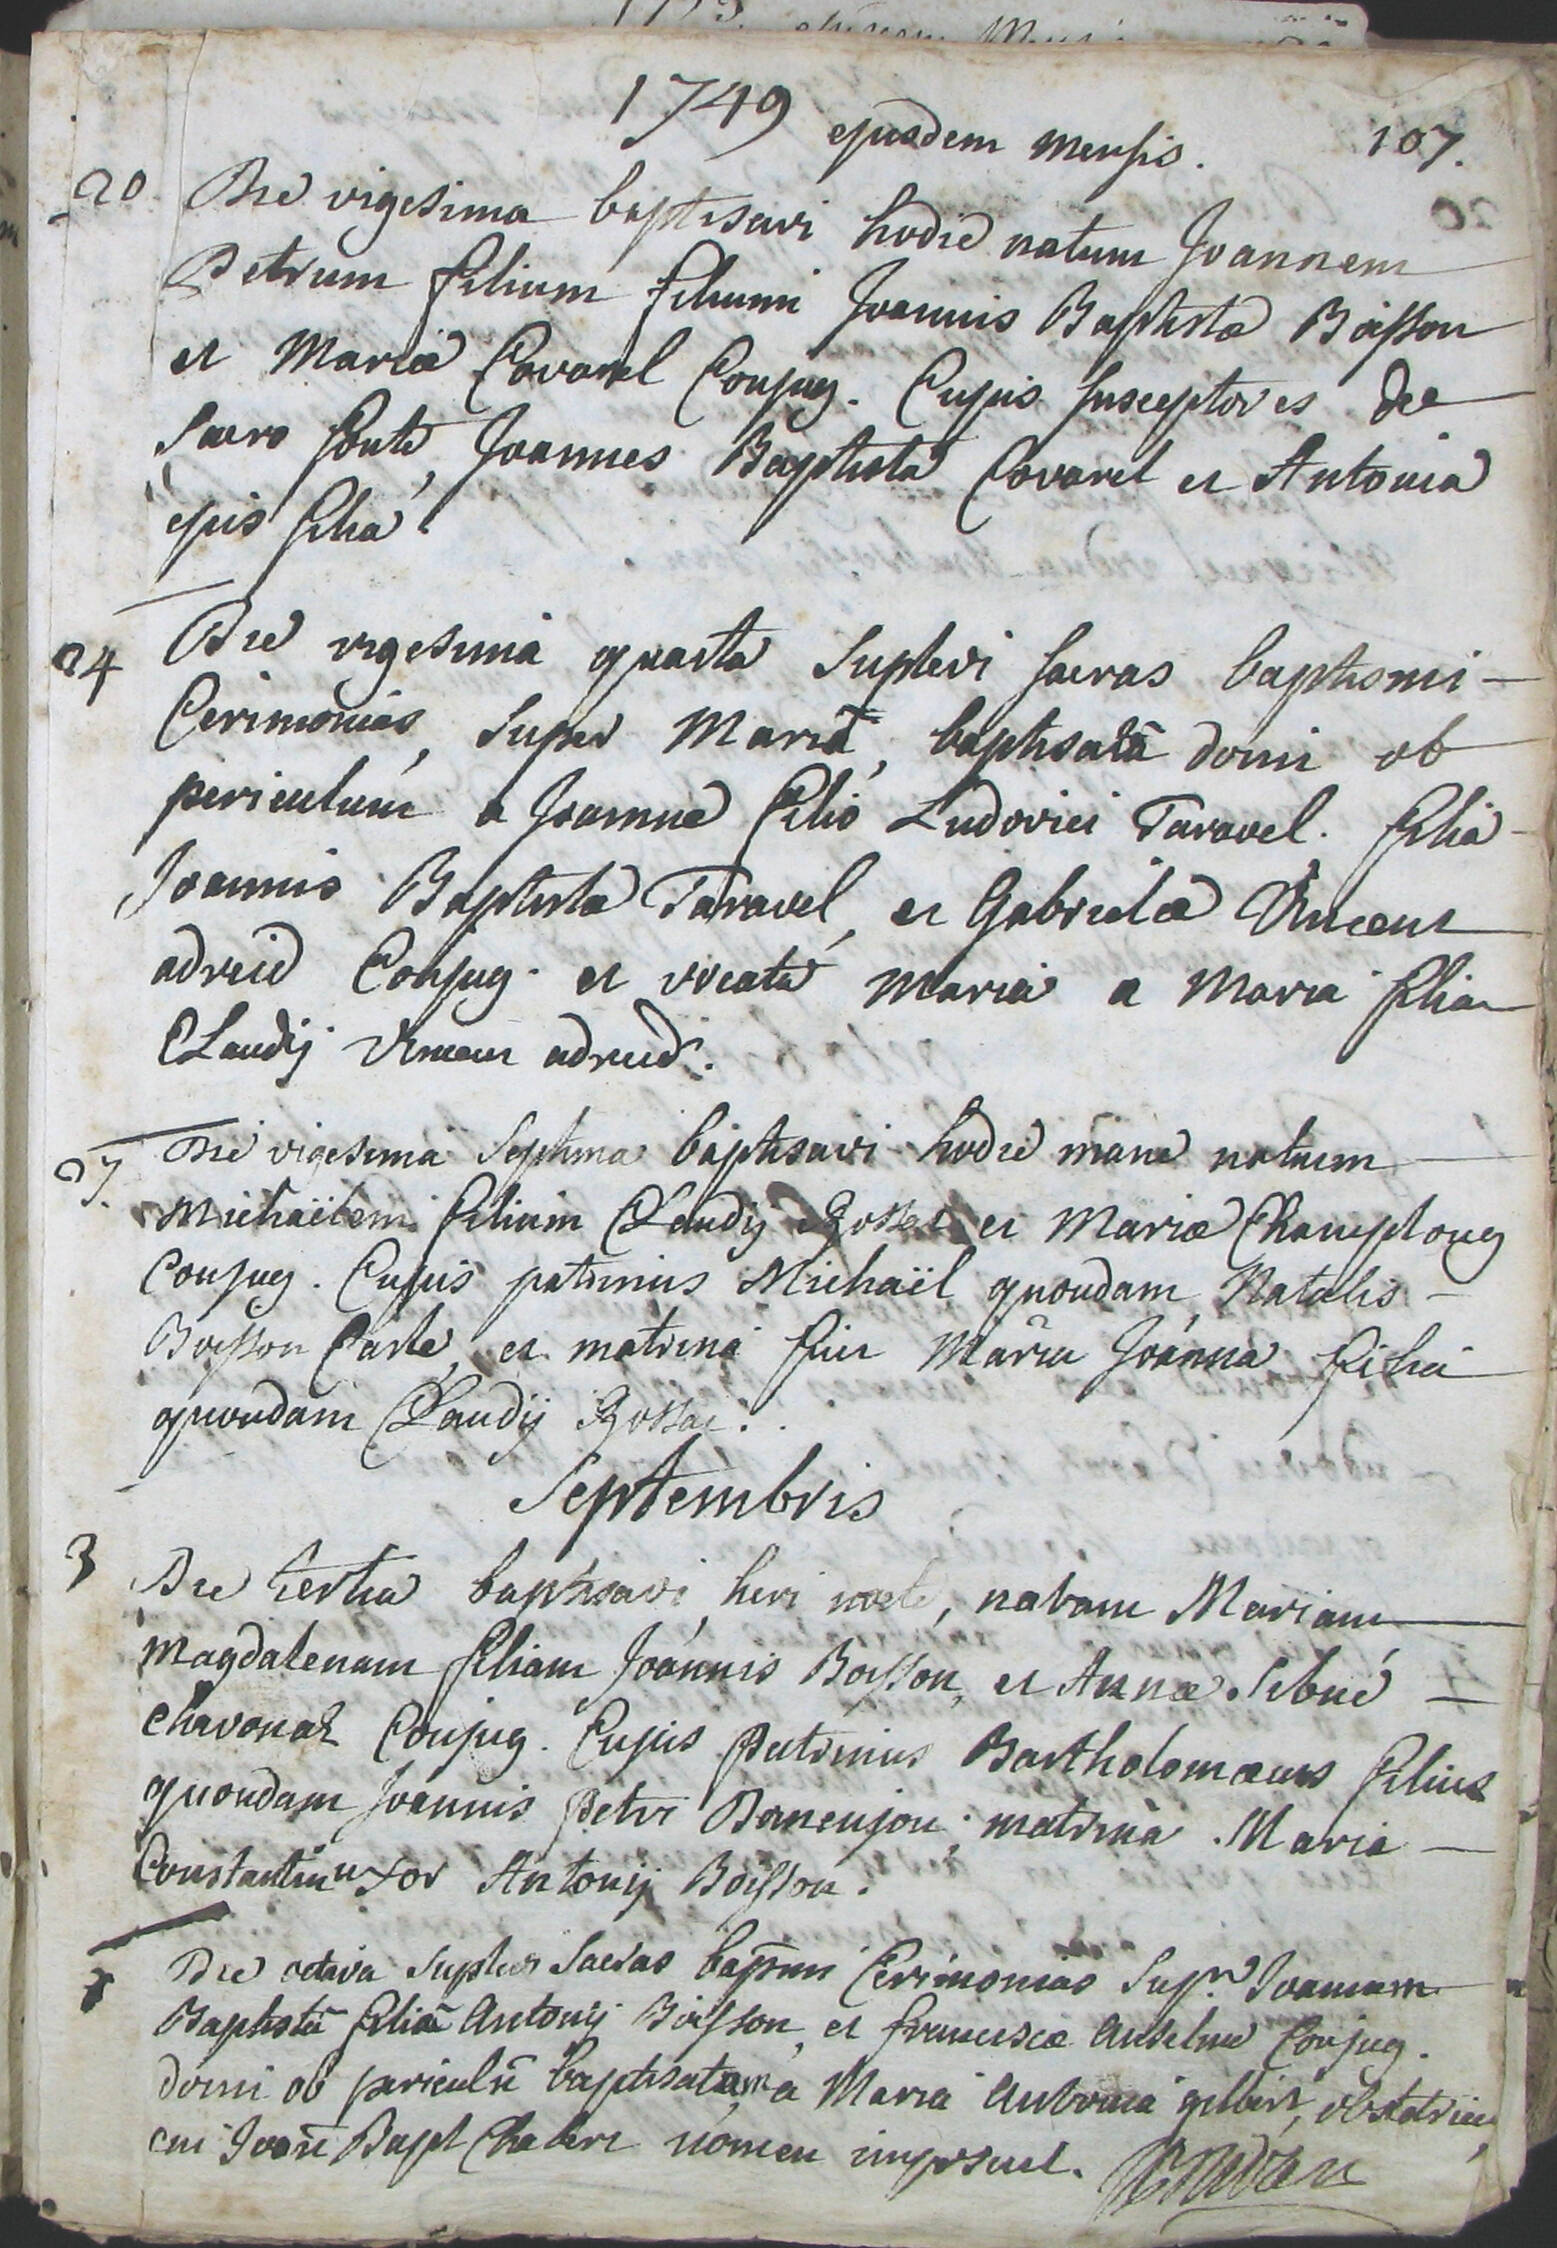 1749 ejusdem mensis. 107.
20 Die vigesima baptisavi hodie natum Joannem
Petrum filium filium Joannis Baptistæ Boisson
et Mariæ Covarel Conjug. Cujus susceptores de
sacro fonte, Joannes Baptista Covarel et Antonia
ejus filia.
24 Die vigesima quarta suplevi sacras baptismi
Cerimonias, super Mariā, baptisatā domi ob
periculum a Joanne filio Ludovici Taravel. filiā
Joannis Baptistæ Taravel, et Gabrielæ Vincent
adreid Conjug. et vocata Maria a Maria filia
Claudij Vincent adreid.
27. Die vigesima septima baptisavi hodie mane natum
Michaëlem filium Claudij et Mariæ Champlong
Conjug. Cujus patrinus Michaël quondam Natalis
Boisson Carle, et matrina fuit Maria Joanna filia
quondam Claudij
Septembris
3 Die tertia baptisavi heri nocte, natam Mariam
Magdalenam filiam Joannis Boisson, et Annæ
Chavonat Conjug. Cujus Patrinus Bartholomæus filius
quondam Joannis Petri matrina Maria
Constantin uxor Antonij Boisson.
8 Die octava suplevi sacras bapmi Cerimonias sup. Joannam
Baptistā filiā Antonij Boisson, et franciscæ Anselme Conjug.
domi ob periculū baptisatam a Maria Antonia gilbert, obstetrice,
cui Joañ Bapt nomen imposuit.